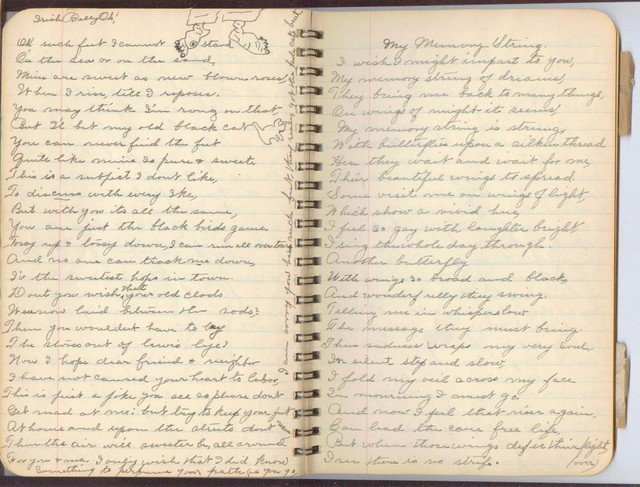 Irish Bally Oh!
Oh such feet I cannot stand
On the sea or on the sand,
Mine are sweet as new blown roses
When I rise, till I reposes.
You may think I'm rong on that
But I'll bet my old black cat
You can never find the feet
Quite like mine so pure & sweet.
This is a subject I dont like,
To discuss with every Ike,
But with you its all the same,
You are just the black birds game.
up & down, I can run all over town
And no one can track me down,
I'm the sweetest hops in town.
Dont you wish that your old clods
Was now laid between the sods?
Then you wouldent have to
The out of legs?
Now I hope dear friend & neighbor
I have not caused your heart to labor,
This is just a joke you see so please dont
Get mad at me: but try to keep your feet
At home and upon the streets dont
Then the air will sweeter be all around
For you & me. I only wish that I did know
Something to perfume your path as you go
I am sorry you have such feet they
My Memory String.
I wish I might impart to you,
My memory string of dreams,
They bring me back to many things,
On wings of might it seems!
My memory string is strung,
With butterflies upon a silken thread
Here they wait and wait for me
Their beautiful wings to spread.
Some visit me on wings of light,
Which show a vivid hue,
I feel so gay with laughter bright
I sing the whole day through.
Another butterfly
With wings so broad and black,
And wonderfully they swing.
Telling me in whispers low
The message they must bring.
Then sadness wraps my very soul
In silent step and slow,
I fold my veil across my face
In mourning I must go
And now I feel that never again.
Can lead the care free life,
But when those wings
I see there is no strife.
(over)